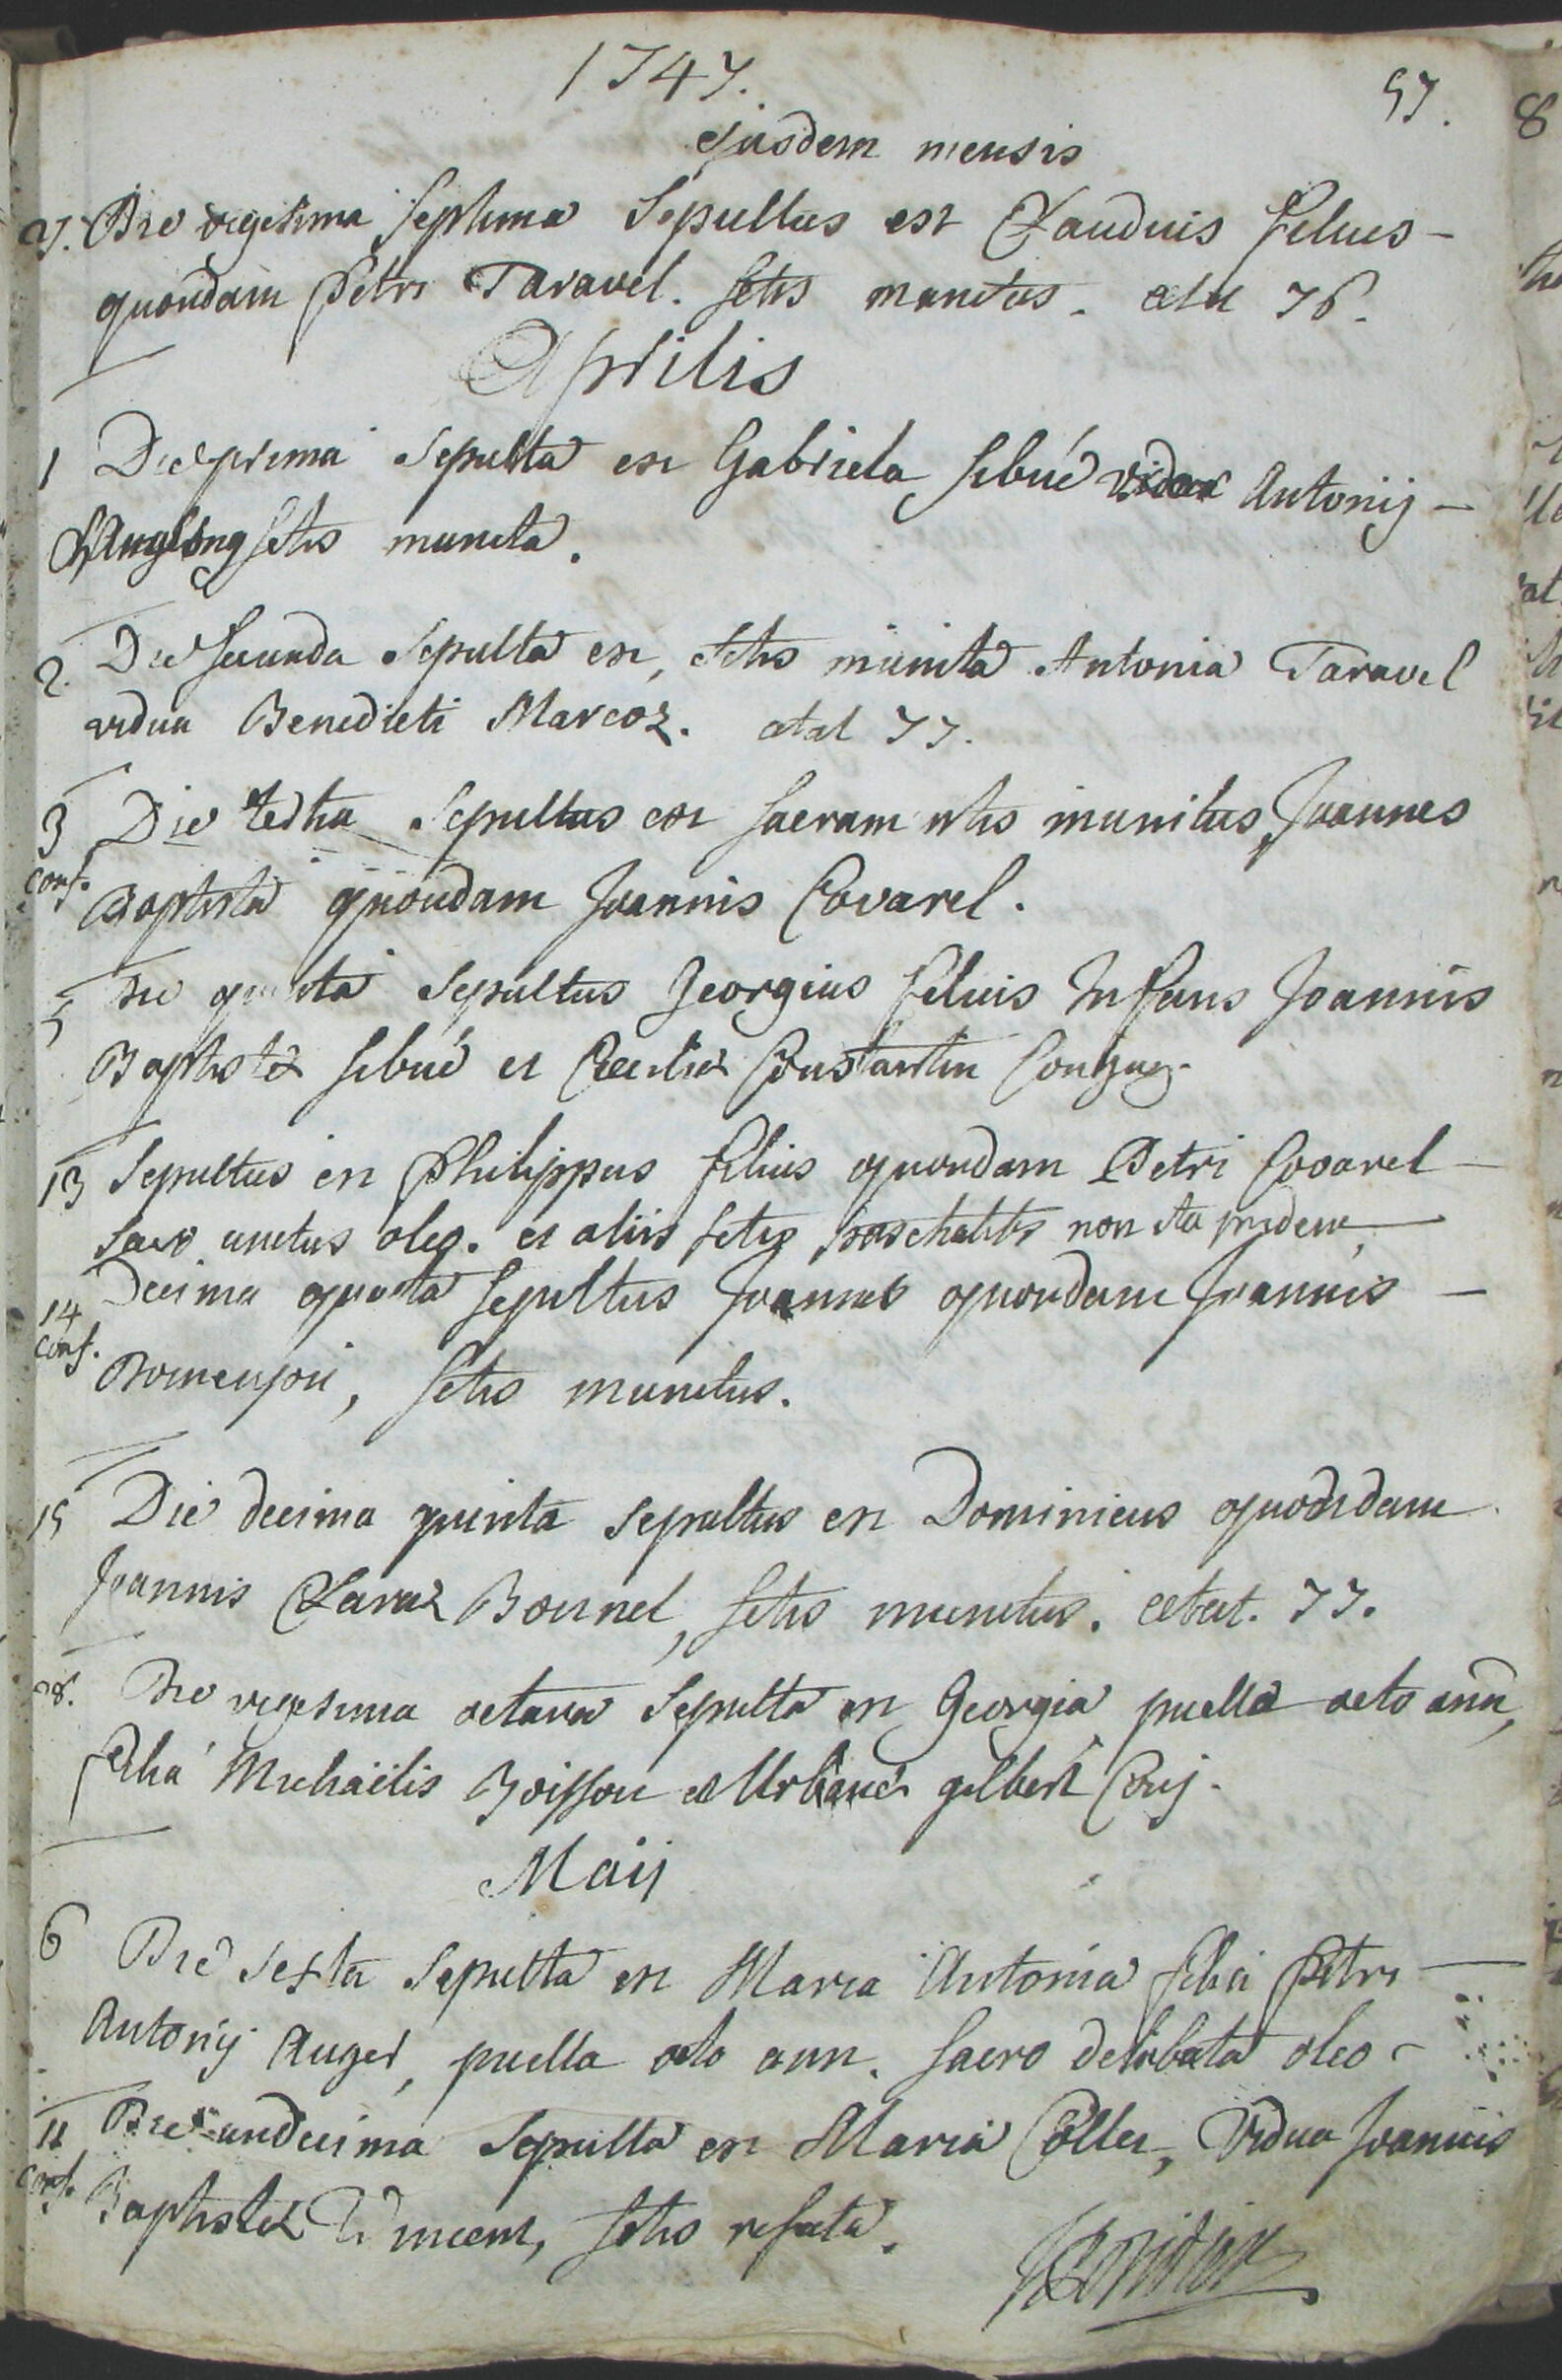 1747.
57.
ejusdem mensis
27. Die vigesima septima Sepultus est Claudius filius -
quondam Petri Taravel. sctis munitus. etat 76.
Aprilis
1 Die prima Sepulta est Gabriela sibué vidua Antonij -
sctis munita.
2. Die secunda Sepulta est, sctis munita Antonia Taravel
vidua Benedicti Marcoz. etat 77.
3 Die tertia Sepultus est sacramentis munitus, Joannes
conf. Baptista quondam Joannis Covarel.
5 Die quinta Sepultus Georgius filius Infans Joannis
Baptistæ sibué et Ceciliæ Constantin Conjug.
13 Sepultus est Philippus filius quondam Petri Covarel -
sacro unctus oleo. et aliis sctis paschalibs non ita pridem
14 Decima quarta sepultus Joannes quondam Joannis -
conf.
Bomenjon, sctis munitus.
15 Die decima quinta sepultus est Dominicus quondam
Joannis Claraz Bonnel, sctis munitus. etat. 77.
28. Die vigesima octava Sepulta est Georgia puella octo ann,
filia Michaëlis Boisson et Urbanæ gilbert Conj.
Maij
6 Die sexta Sepulta est Maria Antonia filia Petri -
Antonij Auger, puella octo ann. sacro delibuta oleo -
11 Die undecima Sepulta est Maria Collet, Vidua Joannis
conf. Baptistæ Vincent, sctis refecta.